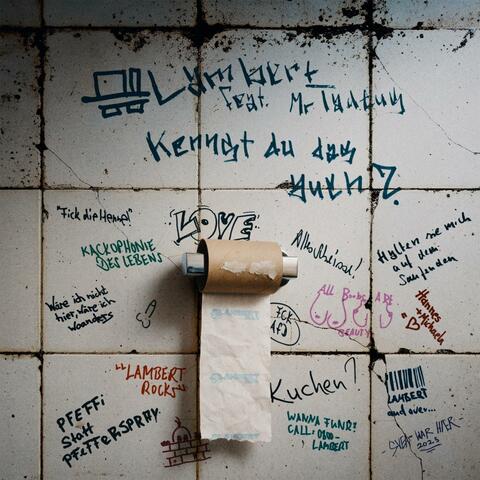 Lambert
feat. Mr
Kennst du das
auch?
"Fick die Hempel"
LOVE
KACKOPHONIE
DES LEBENS
Halten sie mich
auf dem
Laufenden
Wäre ich nicht
hier, wäre ich
woanders
ALL BOOBS ARE
BEAUTY
Hannes
+ Michaela
"LAMBERT
ROCKS"
Kuchen?
LAMBERT
and over...
PFEFFi
statt
PFEFFERSPRAY
WANNA FUNK?
CALL: 0800-
LAMBERT
WAR HIER
2023